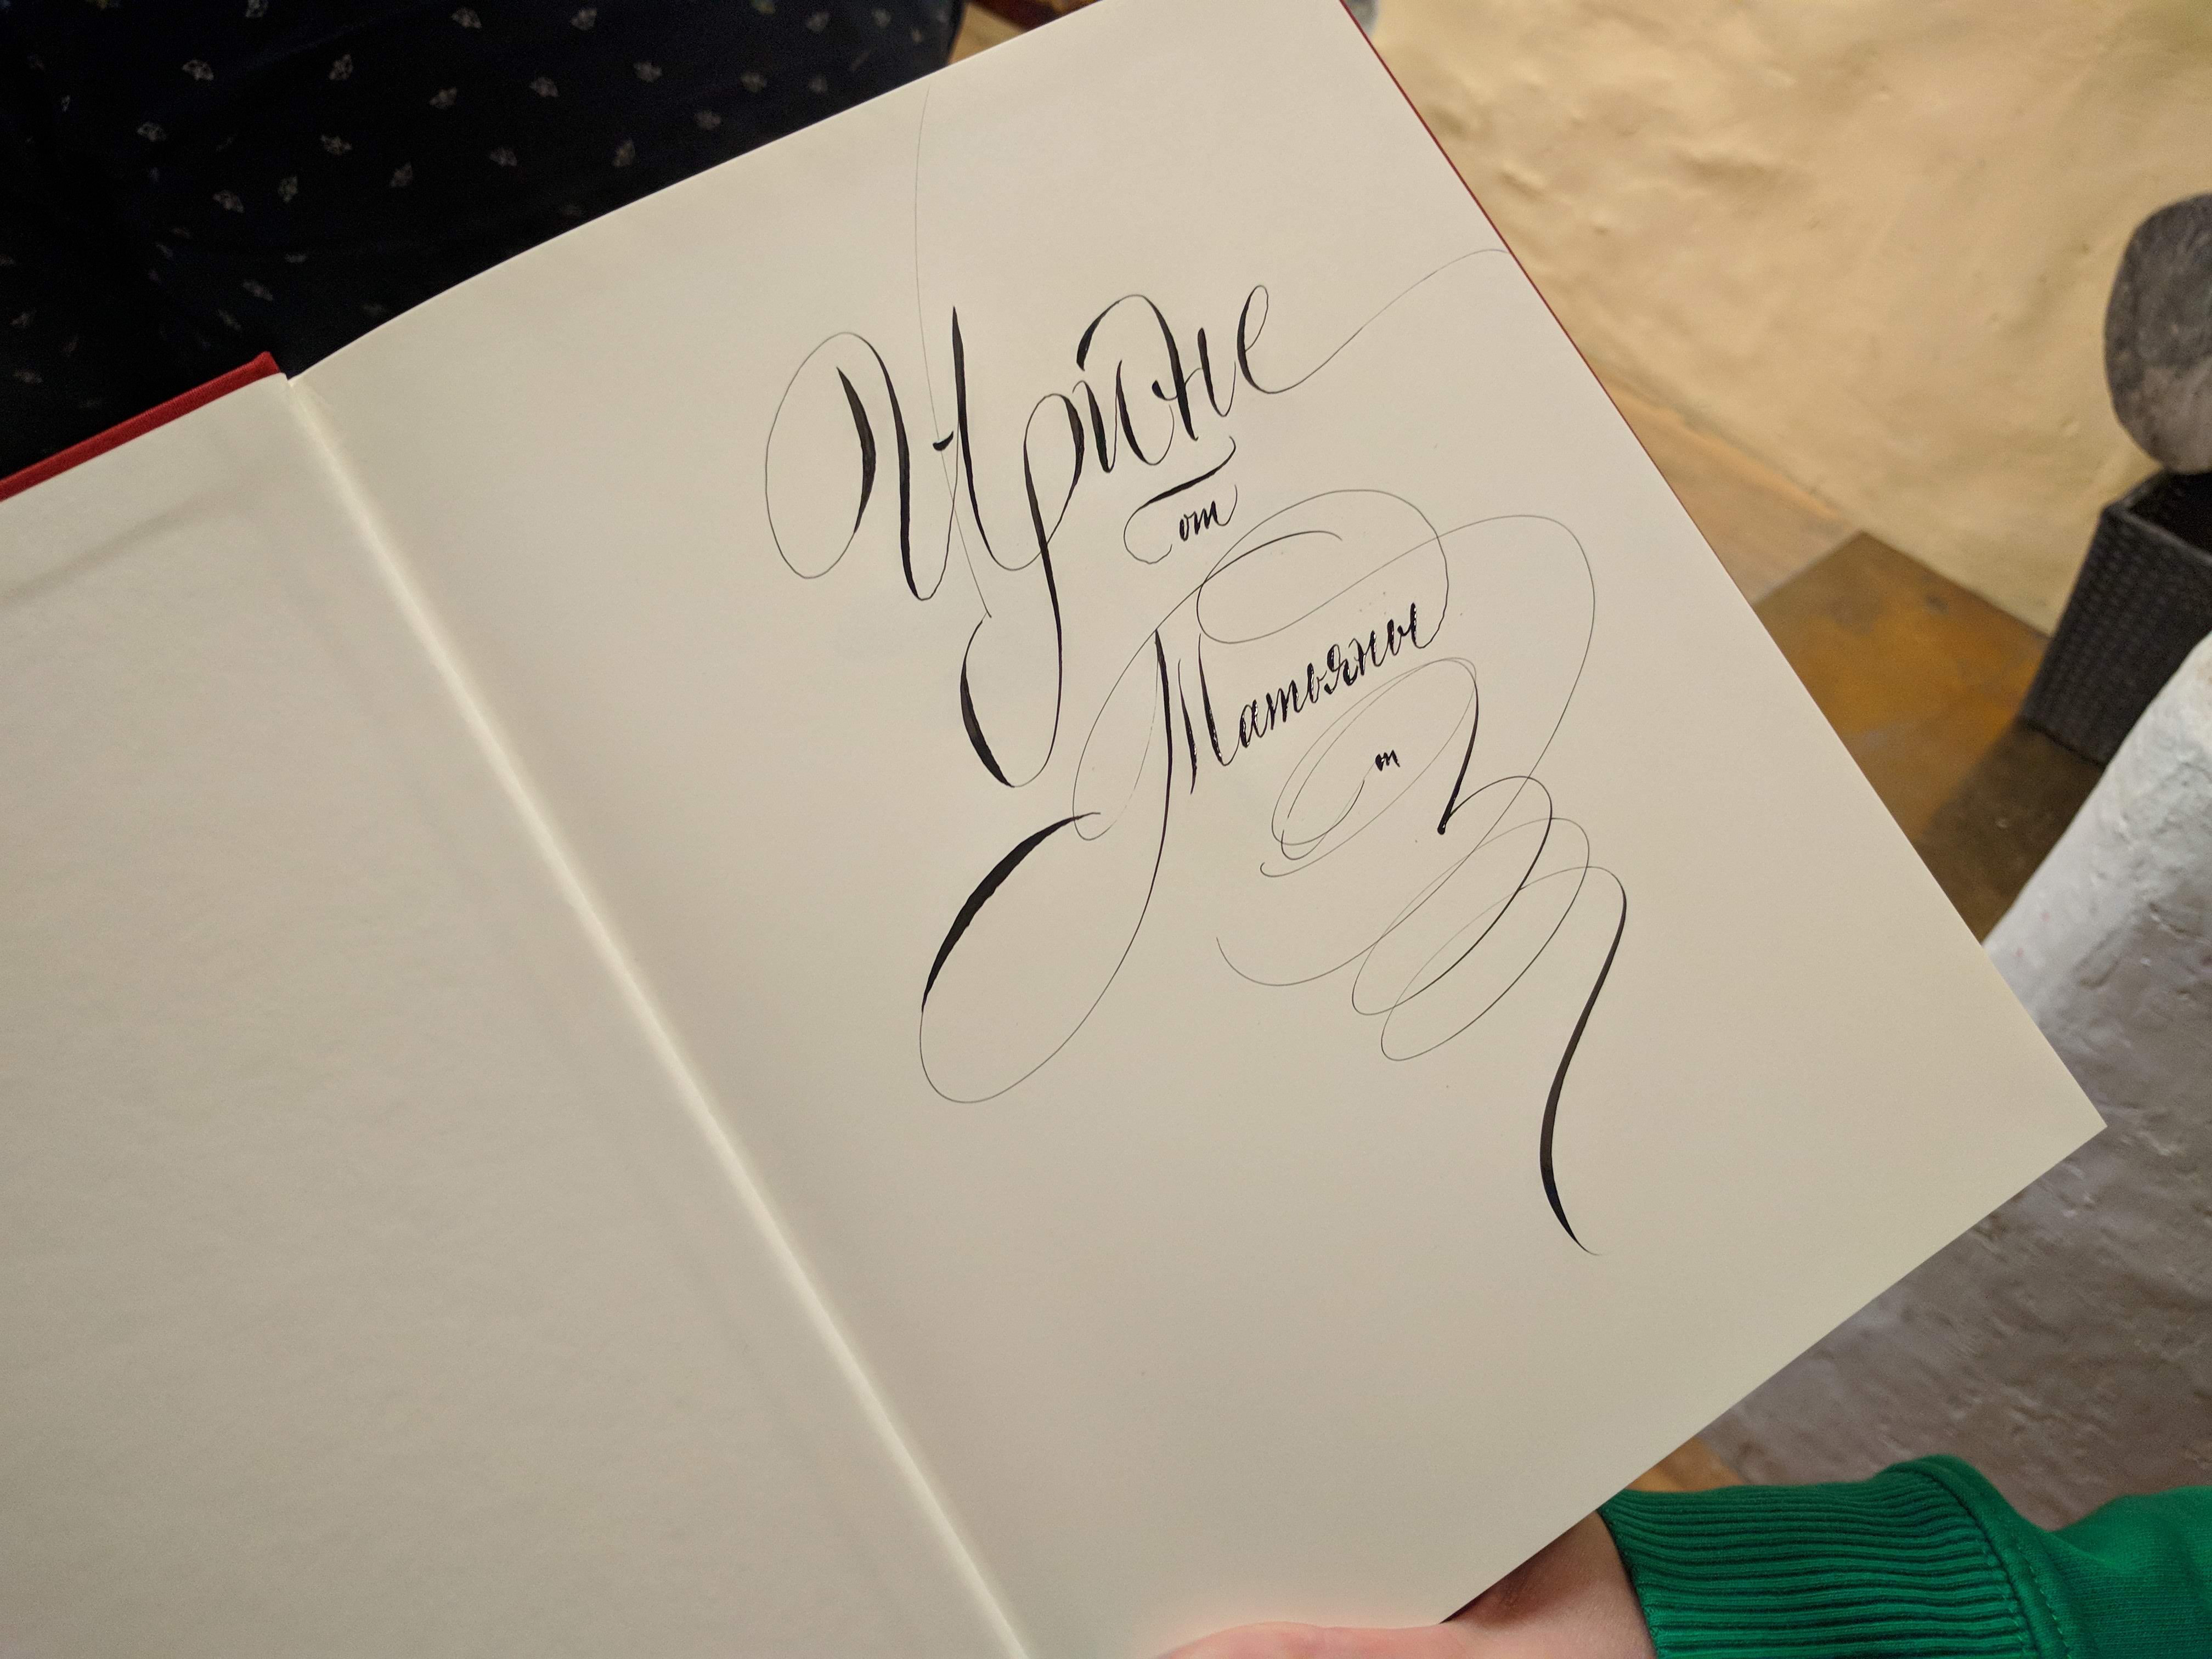 Ирине
от
Татьяны